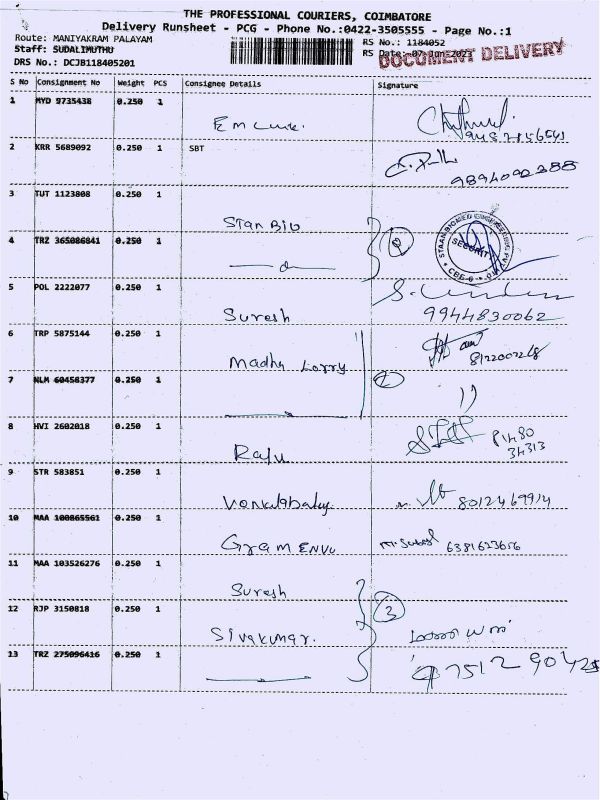 THE PROFESSIONAL COURIERS, COIMBATORE
Delivery Runsheet - PCG - Phone No.:0422-3505555 - Page No.:1
Route: MANIYAKRAM PALAYAM
RS No.: 1184052
Staff: SUDALIMUTHU
RS Date: 07-Jan-2023
DOCUMENT DELIVERY
DRS No.: DCJB118405201
S No Consignment No Weight PCS Consignee Details Signature
1 MYD 9735438 0.250 1
2 KRR 5689092 0.250 1 SBT
9894092388
3 TUT 1123808 0.250 1
Stan Bio
4 TRZ 365086841 0.250 1
SECURITY
CBE-6
5 POL 2222077 0.250 1
Suresh 9944830062
6 TRP 5875144 0.250 1
Madhu Lorry
7 NLM 60458377 0.250 1
8 HVI 2602018 0.250 1
Raju
9 STR 583851 0.250 1
8012469914
10 MAA 100865561 0.250 1
Gram
6381623656
11 MAA 103526276 0.250 1
Suresh
3
12 RJP 3150818 0.250 1
Sivakumar.
13 TRZ 275096416 0.250 1